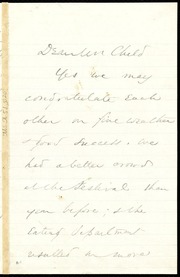 Dear Mr Child
Yes we may
congratulate each
other on fine weather
& good success. We
had a better crowd
at the Festival than
year before; & the
eating department
resulted in more